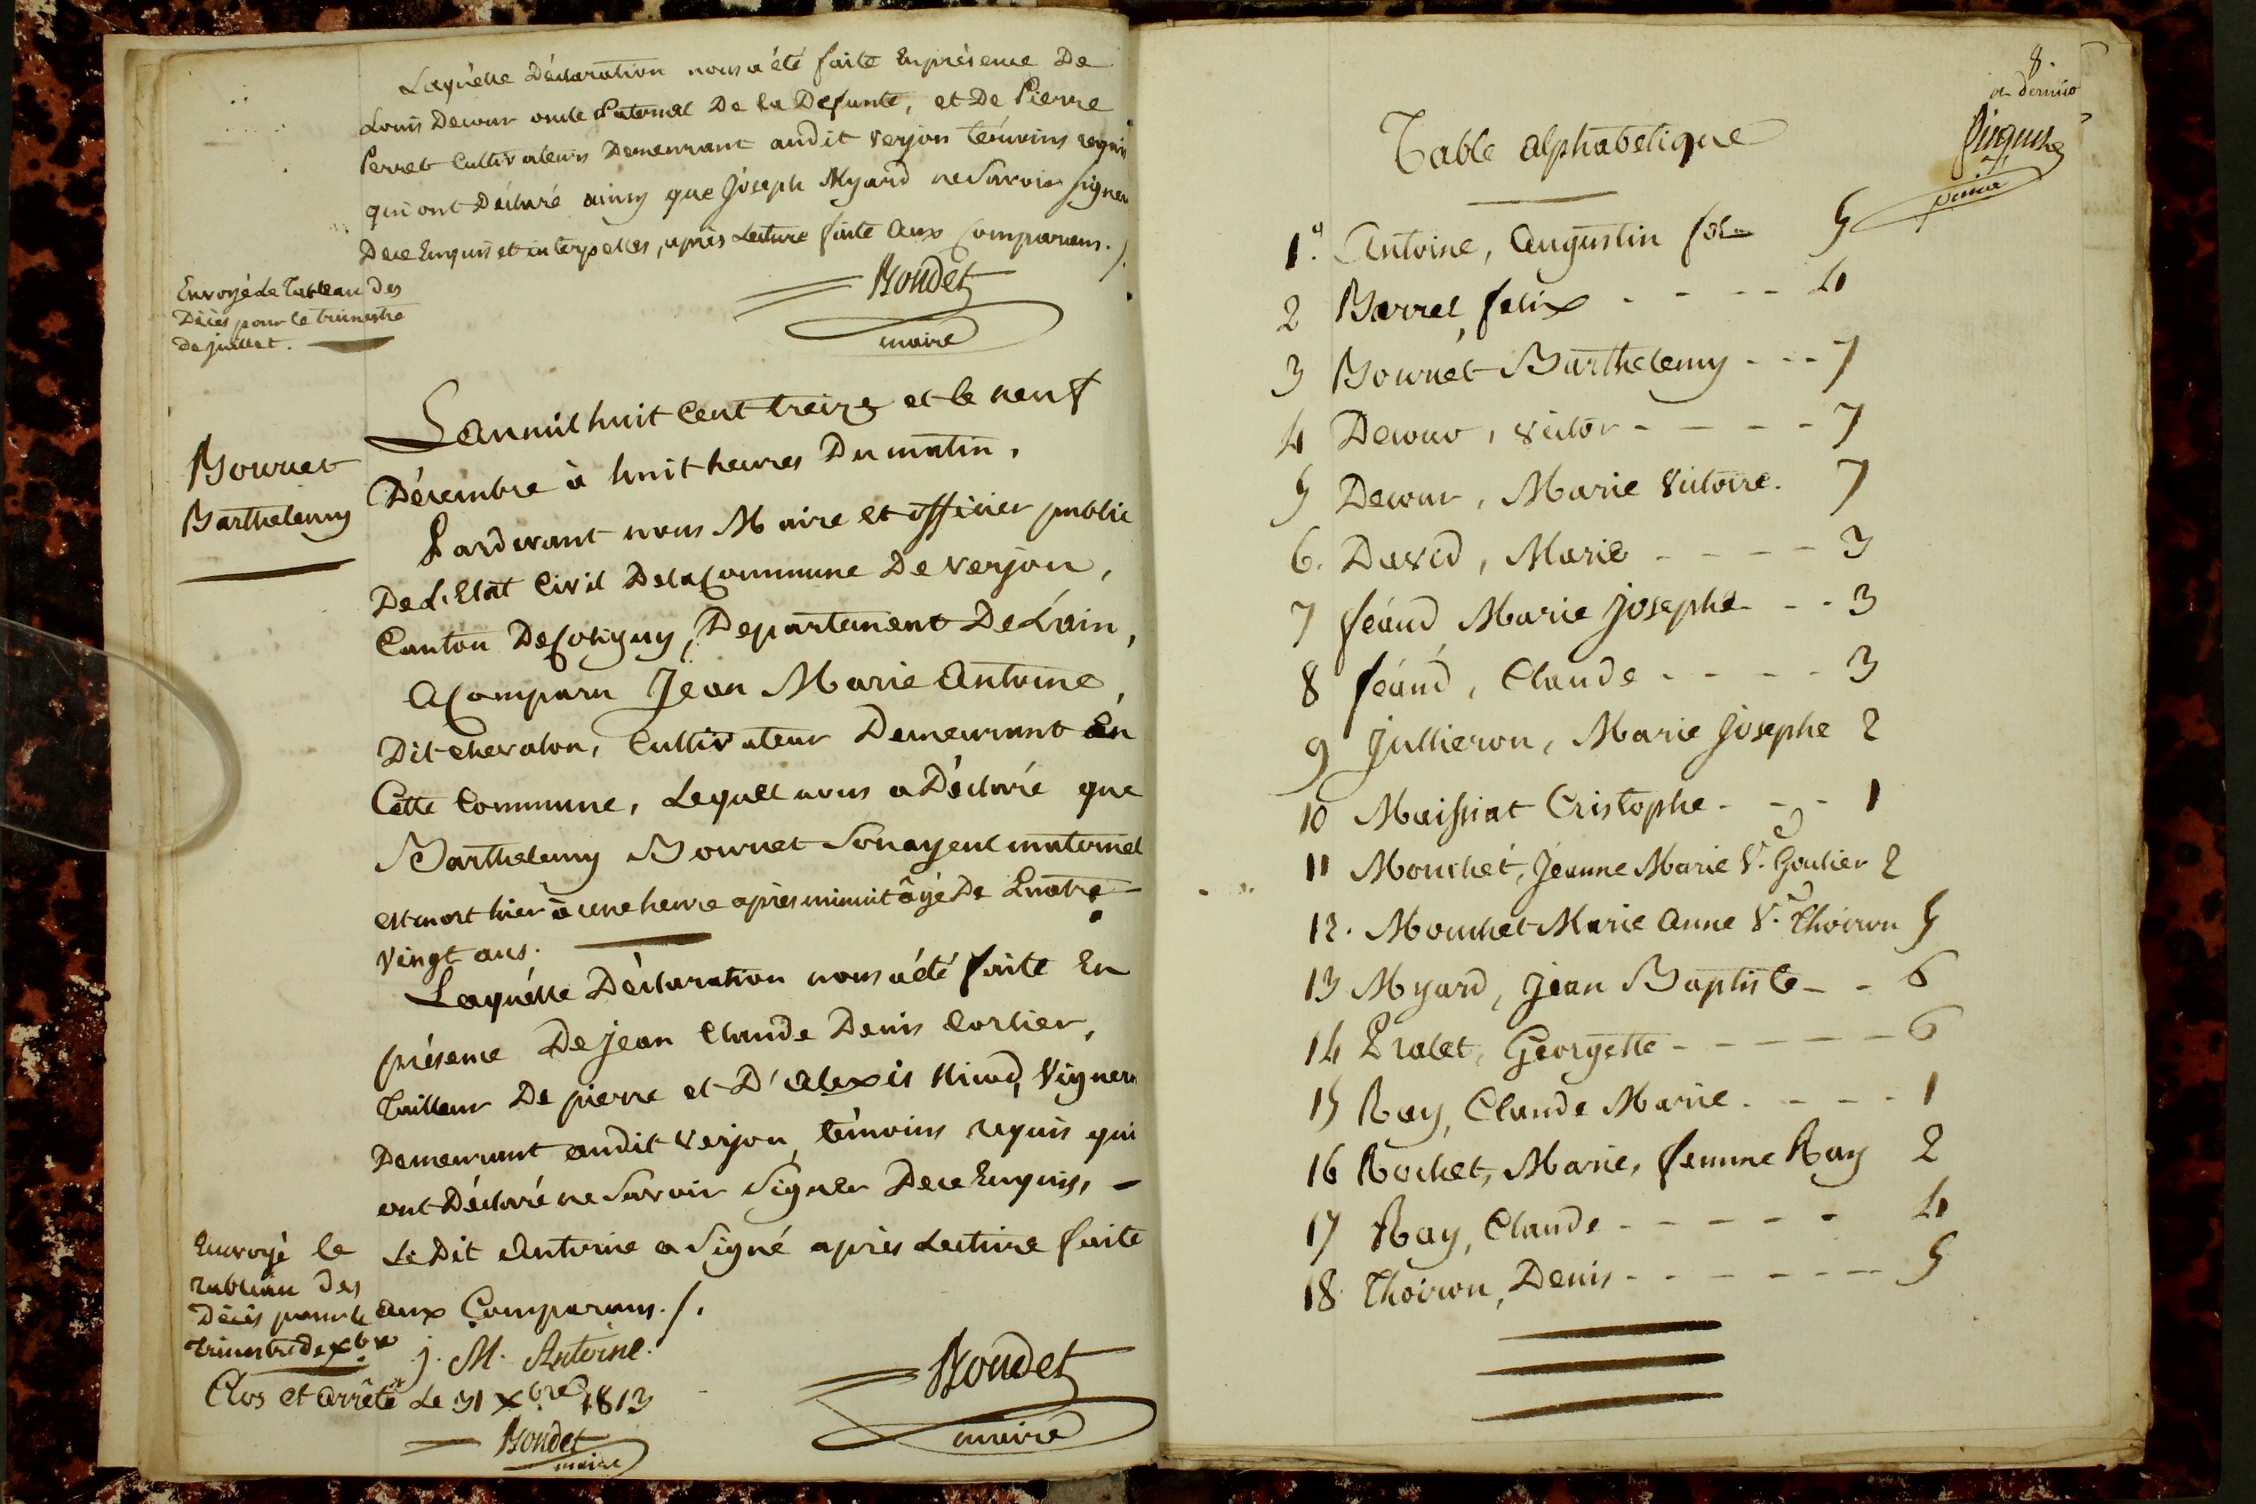 Laquelle Déclaration nous a été faite En présence De
Louis Decour oncle Paternel De la Defunte, et De Pierre
Perret Cultivateurs Demeurant audit verjon témoins requis
qui ont Déclaré ainsy que Joseph Myard ne Savoir signer
De ce Enquis et interpellés, après Lecture faite aux Comparans./.
Boudet
maire
Envoyé le Tableau des
Décès pour le trimestre
de juillet.
Bournet
Barthelemy
L'an mil huit Cent treize et le neuf
Décembre à huit heures Du matin,
Pardevant nous Maire et officier public
De L'Etat Civil De la Commune De verjon,
Canton De Coligny, Departement De L'ain,
A Comparu Jean Marie Antoine,
Dit chevalon, Cultivateur Demeurant En
Cette Commune, Lequel nous a Déclaré que
Barthelemy Bournet Son ayeul maternel
est mort hier à une heure après minuit âgé De Quatre
Vingt ans.
Laquelle Déclaration nous a été faite En
présence De jean Claude Denis Cortier,
Tailleur De pierre et D'alexis Nicod, Vigneron
Demeurant audit Verjon, témoins requis qui
ont Déclaré ne Savoir Signer De ce Enquis,
Le Dit Antoine a Signé après Lecture faite
aux Comparans./.
Envoyé le
tableau des
Décès pour le
Trimestre de xbre
j. M. Antoine.
Clos et arrêté Le 31 Xbre 1813
Boudet
maire
Boudet
maire
8.
et dernier
Table alphabetique
1° Antoine, Augustin fol 5
2 Barrel, felix 4
3 Bournet Barthelemy 7
4 Decour, victor 7
5 Decour, Marie Victoire. 7
6. David, Marie 3
7 féaud Marie Josephe 3
8 féaud, Claude 3
9 Jullieron, Marie Josephe 2
10 Maissiat Cristophe 1
11 Mouchet, Jeanne Marie Ve Goulier 2
12. Mouchet Marie Anne Ve Thoiron 5
13 Myard, Jean Baptiste 6
14 Pralet, Georgette 6
15 Ray, Claude Marie 1
16 Rochet, Marie, femme Ray 2
17 Ray, Claude 4
18 Thoiron, Denis 5